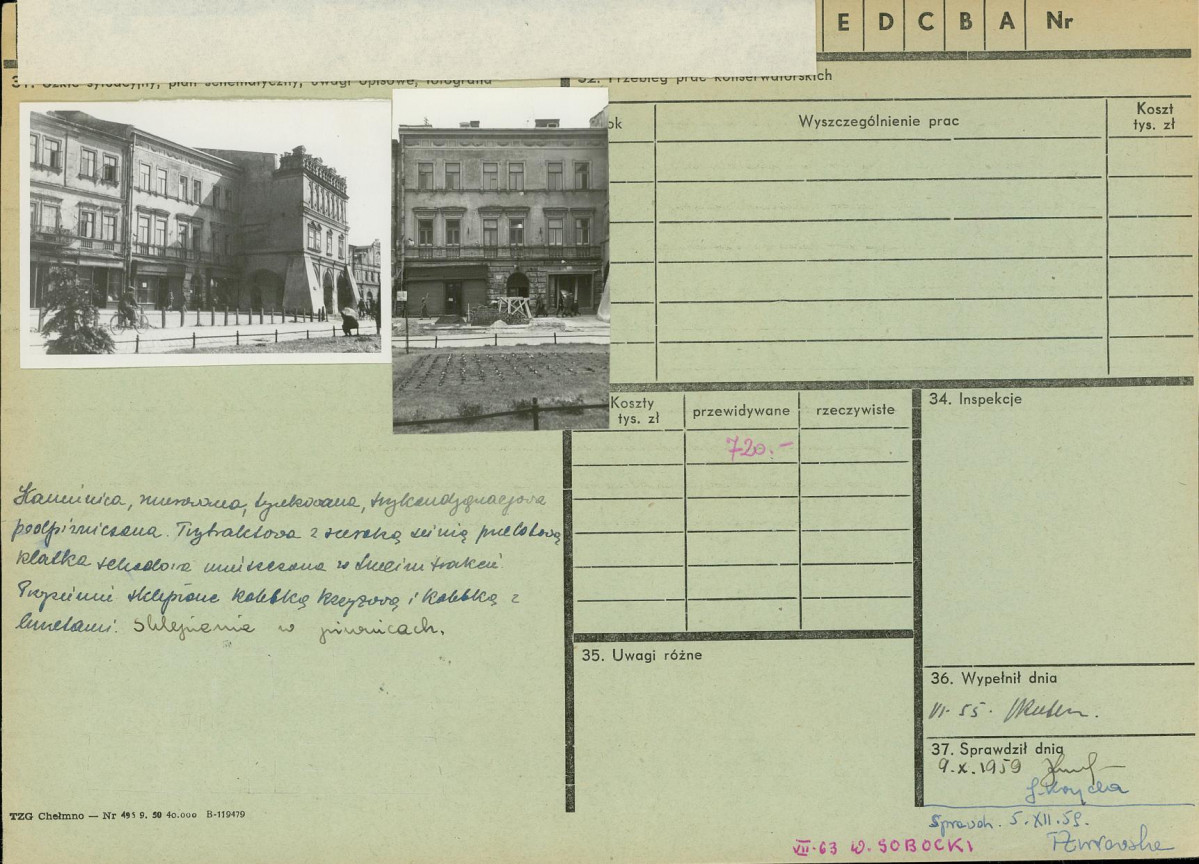 E D C B A Nr
31. Szkic sytuacyjny, plan schematyczny, uwagi opisowe, fotografia
32. Przebieg prac konserwatorskich
ok
Wyszczególnienie prac
Koszt
tys. zł
Koszty
tys. zł
przewidywane
rzeczywiste
720.-
34. Inspekcje
Kamienica, murowana, tynkowana, trzykondygnacjowa
podpiwniczona. Trytraktowa z szeroką sienią przelotową
klatka schodowa umieszczona w trakcie.
sklepione kolebką krzyżową i kolebką z
lunetami. Sklepienia w piwnicach.
35. Uwagi różne
36. Wypełnił dnia
VI. 55.
37. Sprawdził dnia
9.X.1959
Sprawdz. 5.XII.59.
VII.63 W. SOBOCKI
TZG Chełmno — Nr 495 9. 50 40.000 B-119479